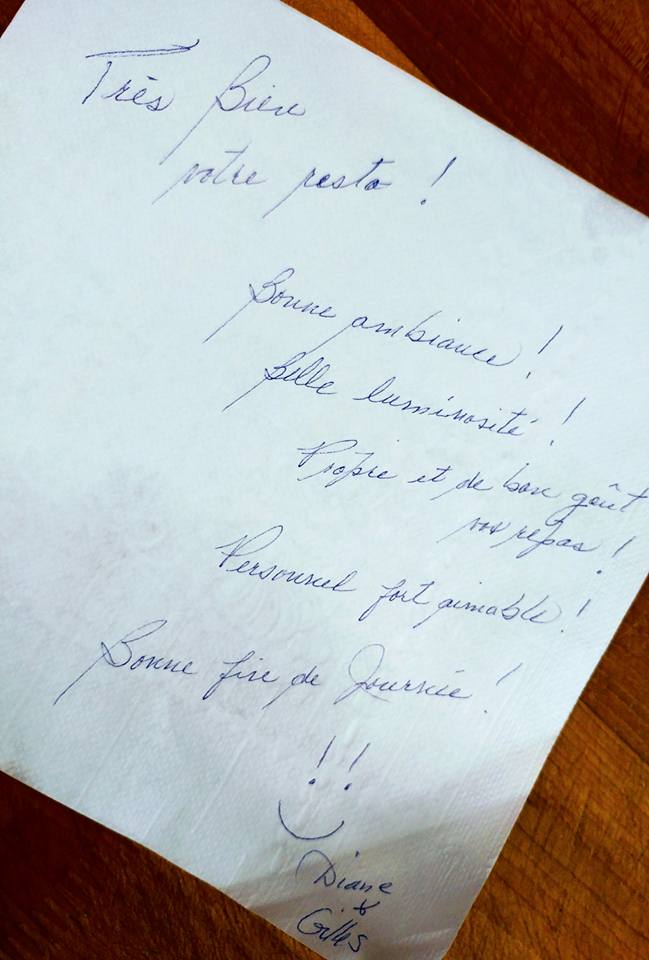 Très Bien
votre resto !
Bonne ambiance !
Belle luminosité !
Propre et de bon goût
vos repas !
Personnel fort aimable !
Bonne fin de Journée !
!!
Diane
&
Gilles